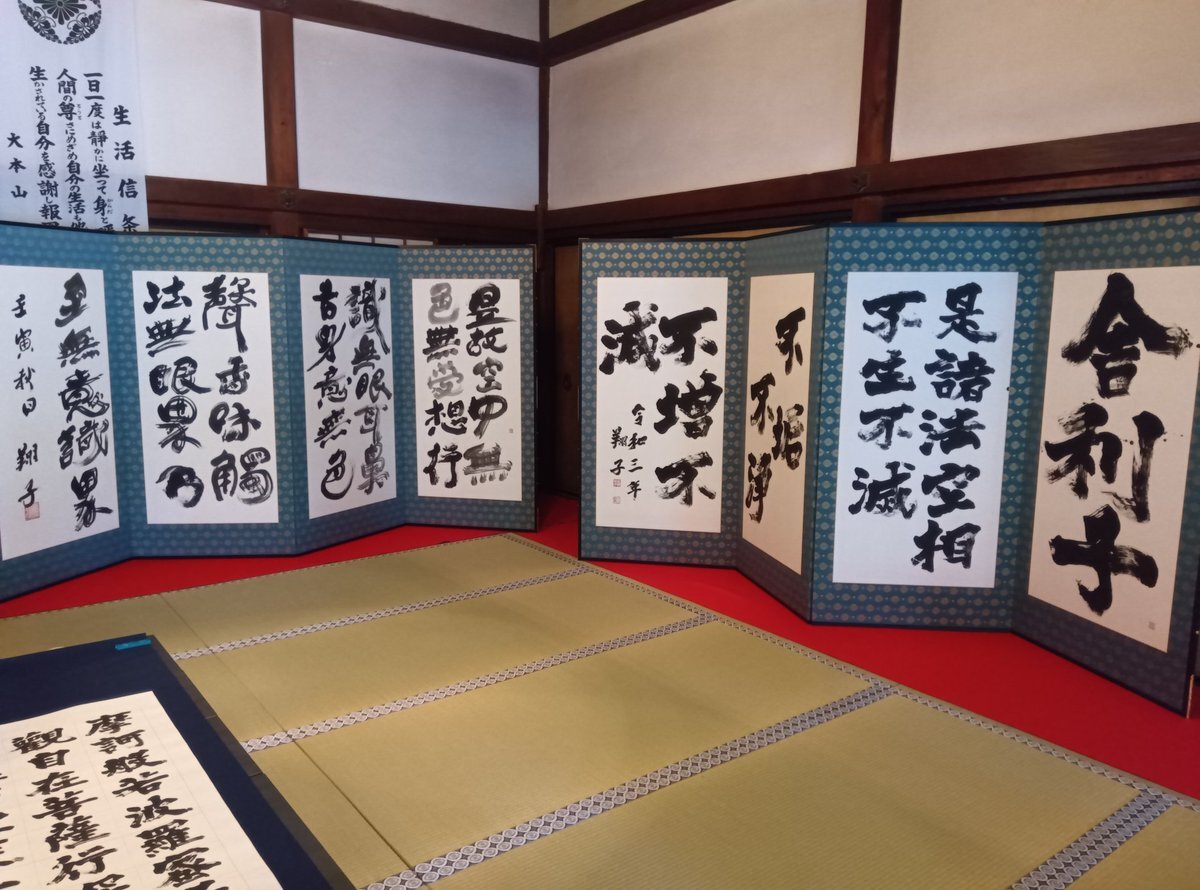 生活信条
一日一度は静かに坐って身と
人間の尊さにめざめ自分の生活も
生かされている自分を感謝し報
大本山
舎利子
是諸法空相
不生不滅
不垢
不淨
不増不
減
令和三年
翔子
是故空中無
色無受想行
識無眼耳鼻
舌身意無色
聲香味觸
法無眼界乃
至無意識界
壬寅秋日 翔子
摩訶般若波羅蜜
觀自在菩薩行